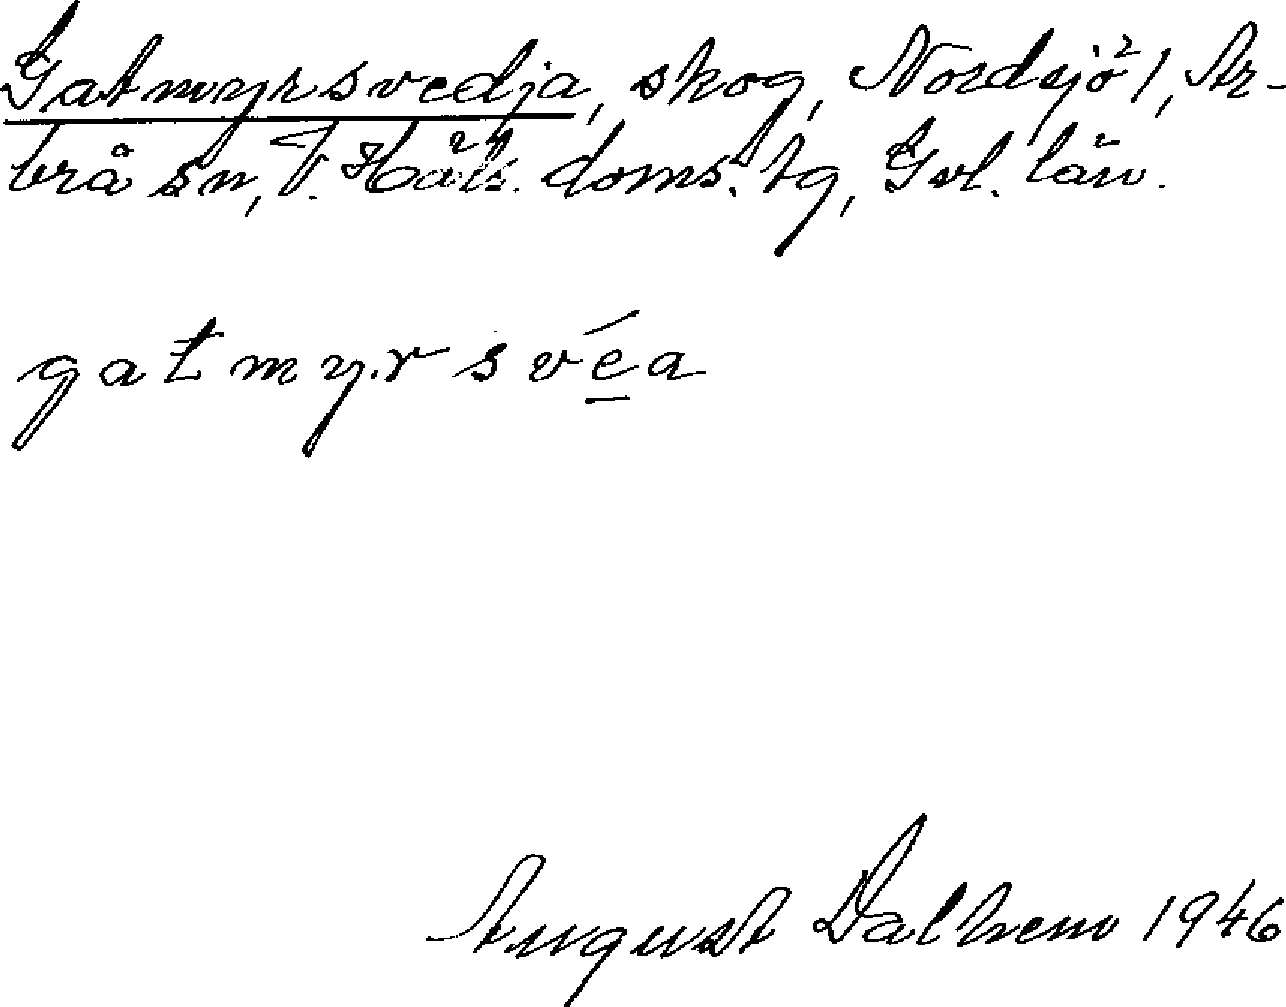 Gatmyrsvedja, skog, Nordsjö² 1, Ar-
brå sn, V. Häls. doms. tg, Gvl. län.
gatmy.rsvéa
August Dalhem 1946